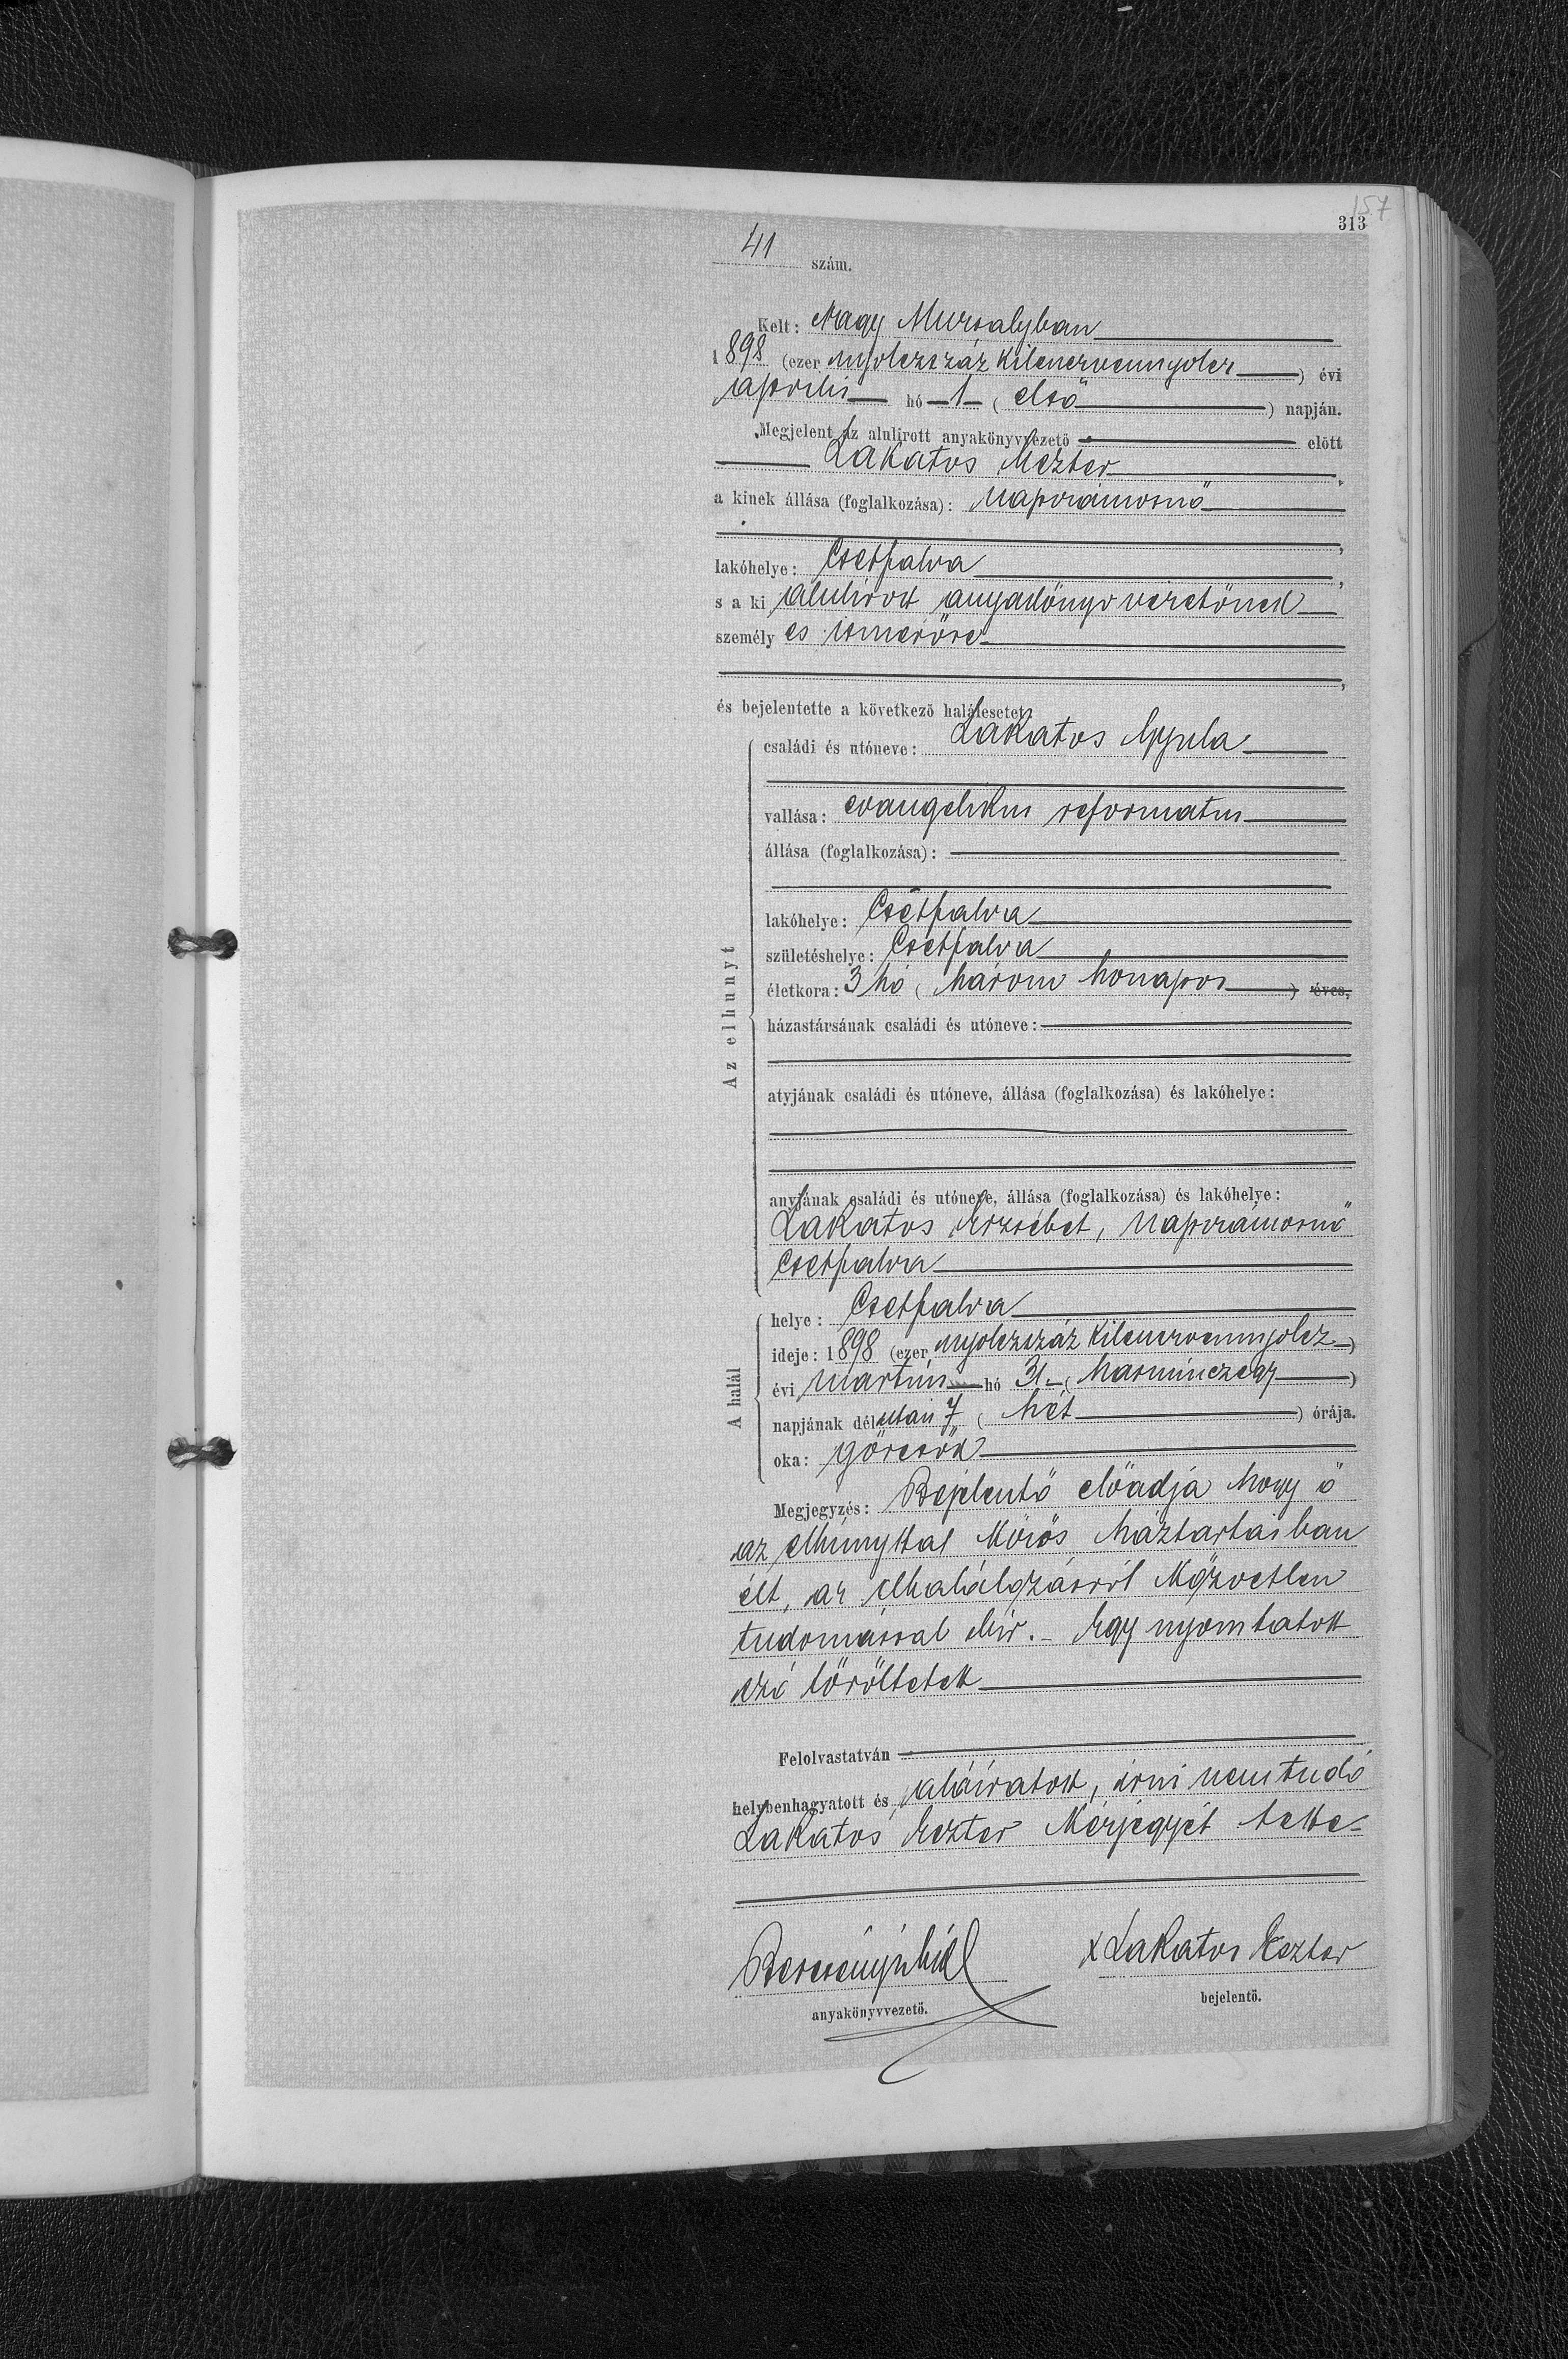 157
313
41 szám.
Kelt: Nagy Muzsalyban
1898 (ezer nyolczszáz kilenczvennyolcz) évi
április hó 1 (első) napján.
Megjelent az alulirott anyakönyvvezető előtt
Lakatos Eszter,
a kinek állása (foglalkozása): napszámosnő
,
lakóhelye: Csetfalva,
s a ki alulirott anyakönyvvezetőnek
személyes ismerőse
,
és bejelentette a következő halálesetet:
Az elhunyt
családi és utóneve: Lakatos Gyula
vallása: evangelikus reformatus
állása (foglalkozása):
lakóhelye: Csetfalva
születéshelye: Csetfalva
életkora: 3 hó (három honapos) éves,
házastársának családi és utóneve:
atyjának családi és utóneve, állása (foglalkozása) és lakóhelye:
anyjának családi és utóneve, állása (foglalkozása) és lakóhelye:
Lakatos Erzsébet, napszámosnő
Csetfalva
A halál
helye: Csetfalva
ideje: 1898 (ezer nyolczszáz kilenczvennyolcz)
évi martius hó 31 (harminczegy)
napjának délután 7 (hét) órája.
oka: görcsök
Megjegyzés: Bejelentő előadja hogy ő
az elhunyttal közös háztartásban
élt, az elhalálozásról közvetlen
tudomással bir. - Egy nyomtatott
szó töröltetett
Felolvastatván
helybenhagyatott és aláíratott, írni nem tudó
Lakatos Eszter kézjegyét tette-
anyakönyvvezető.
x Lakatos Eszter
bejelentő.